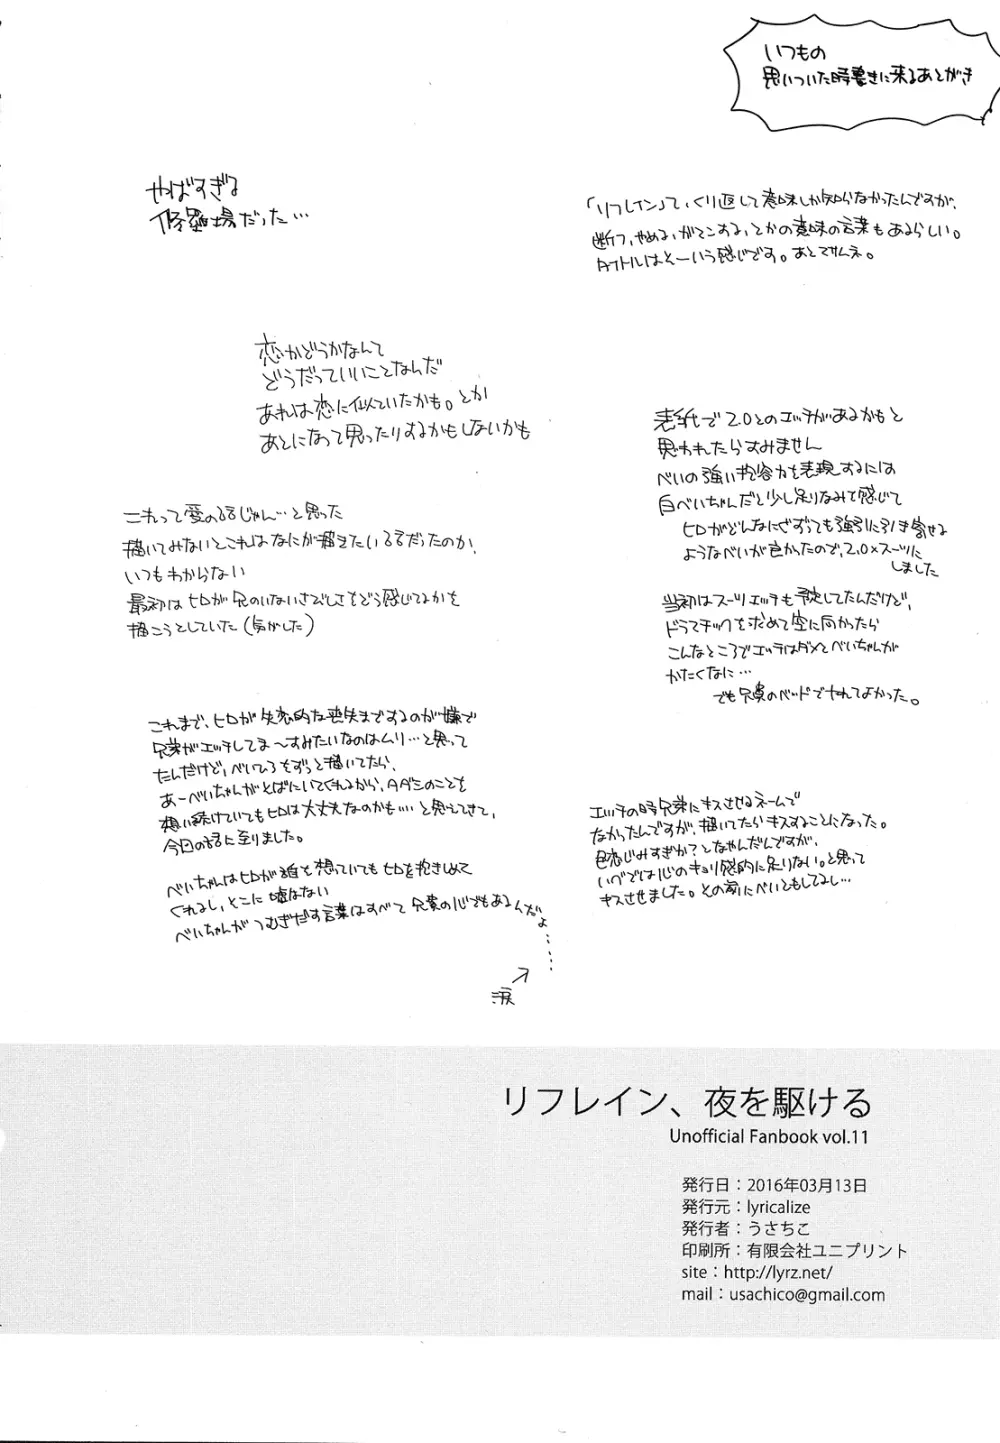 いつもの
思いついた時書きに来るあとがき
「リフレイン」って、くり返して意味しか知らなかったんですが、
断つ、やめる、がマンする、とかの意味の言葉もあるらしい。
タイトルはそーいう感じです。あとマサムネ。
やばすぎる
修羅場だった…
恋かどうかなんて
どうだっていいことなんだ
あれは恋に似ていたかも。とか
あとになって思ったりするかもしないかも
表紙で2.0とのエッチがあるかもと
思われたらすみません
べいの強い抱容力を表現するには
白べいちゃんだと少し足りなみを感じて
ヒロがどんなにぐずっても強引に引き寄せる
ようなべいが良かったので、2.0×スーツに
しました
これって愛の話じゃん…と思った
描いてみないとこれはなにが描きたい話だったのか、
いつもわからない
最初はヒロが兄のいないさびしさをどう感じてるかを
描こうとしていた(気がした)
当初はスーツエッチも予定してたんだけど、
ドラマチックを求めて空に向かったら
こんなところでエッチはダメとべいちゃんが
かたくなに…
でも兄貴のベッドでヤれてよかった。
これまで、ヒロが失恋的な喪失までするのが嫌で
兄弟がエッチしてま～すみたいなのはムリ…と思って
たんだけど、べいひろをずっと描いてたら、
あーべいちゃんがそばにいてくれるから、タダシのことを
想い続けていてもヒロは大丈夫なのかも…と思えてきて、
今回の話に至りました。
エッチの時兄弟にキスさせるネームで
なかったんですが、描いてたらキスすることになった。
色恋じみすぎか?となやんだんですが、
いれでは心のキョリ感的に足りない。と思って
キスさせました。その前にべいともしてるし…
べいちゃんはヒロが誰を想っていてもヒロを抱きしめて
くれるし、そこに嘘はない
べいちゃんがつむぎだす言葉はすべて兄貴の心でもあるんだよ……
涙
リフレイン、夜を駆ける
Unofficial Fanbook vol.11
発行日：2016年03月13日
発行元：lyricalize
発行者：うさちこ
印刷所：有限会社ユニプリント
site：http://lyrz.net/
mail：usachico@gmail.com